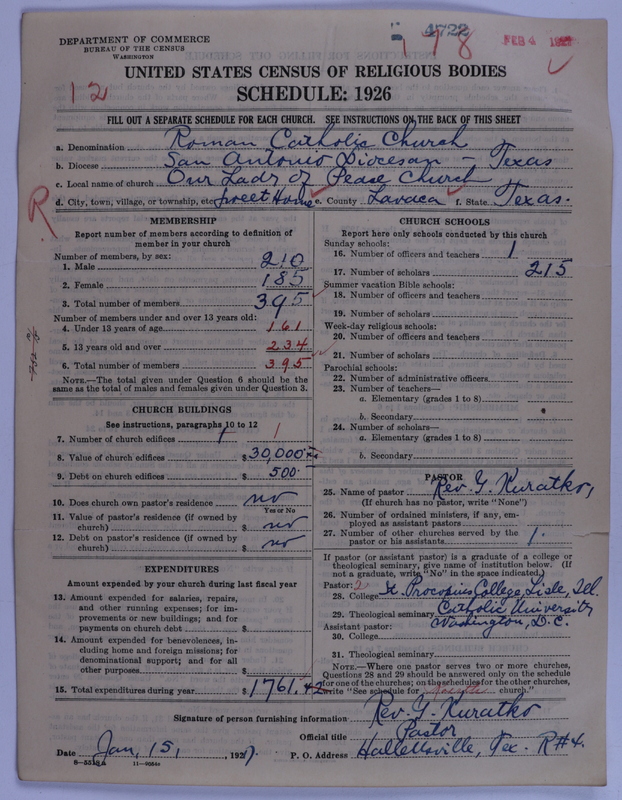 4722
178
FEB 4 1927
DEPARTMENT OF COMMERCE
BUREAU OF THE CENSUS
WASHINGTON
12
UNITED STATES CENSUS OF RELIGIOUS BODIES
SCHEDULE: 1926
FILL OUT A SEPARATE SCHEDULE FOR EACH CHURCH. SEE INSTRUCTIONS ON THE BACK OF THIS SHEET
a. Denomination Roman Catholic Church
b. Diocese San Antonio Diocesan - Texas
c. Local name of church Our Lady of Peace Church
d. City, town, village, or township, etc. Sweet Home e. County Lavaca f. State Texas.
R
MEMBERSHIP
Report number of members according to definition of
member in your church
Number of members, by sex:
1. Male 210
2. Female 185
3. Total number of members 395
Number of members under and over 13 years old:
4. Under 13 years of age 161
5. 13 years old and over 234
6. Total number of members 395
NOTE.—The total given under Question 6 should be the
same as the total of males and females given under Question 3.
CHURCH BUILDINGS
See instructions, paragraphs 10 to 12
7. Number of church edifices 1 1
8. Value of church edifices $ 30,000
9. Debt on church edifices $ 500
10. Does church own pastor's residence no
Yes or No
11. Value of pastor's residence (if owned by
church) $ no
12. Debt on pastor's residence (if owned by
church) $ no
EXPENDITURES
Amount expended by your church during last fiscal year
13. Amount expended for salaries, repairs,
and other running expenses; for im-
provements or new buildings; and for
payments on church debt $
14. Amount expended for benevolences, in-
cluding home and foreign missions; for
denominational support; and for all
other purposes $
15. Total expenditures during year $ 1761.42
CHURCH SCHOOLS
Report here only schools conducted by this church
Sunday schools:
16. Number of officers and teachers 1
17. Number of scholars 215
Summer vacation Bible schools:
18. Number of officers and teachers
19. Number of scholars
Week-day religious schools:
20. Number of officers and teachers
21. Number of scholars
Parochial schools:
22. Number of administrative officers
23. Number of teachers—
a. Elementary (grades 1 to 8)
b. Secondary
24. Number of scholars—
a. Elementary (grades 1 to 8)
b. Secondary
PASTOR
25. Name of pastor Rev. G. Kuratko,
(If church has no pastor, write "None")
26. Number of ordained ministers, if any, em-
ployed as assistant pastors
27. Number of other churches served by the
pastor or his assistants 1.
If pastor (or assistant pastor) is a graduate of a college or
theological seminary, give name of institution below. (If
not a graduate, write "No" in the space indicated.)
Pastor: 2
28. College St. Procopius College, Lisle, Ill.
29. Theological seminary Catholic University
Assistant pastor: Washington, D.C.
30. College
31. Theological seminary
NOTE.—Where one pastor serves two or more churches,
Questions 28 and 29 should be answered only on the schedule
for one of the churches; on the schedules for the other churches,
write "See schedule for church."
Signature of person furnishing information Rev. G. Kuratko
Official title Pastor
Date Jan, 15, 1927. P. O. Address Hallettsville, Tex. R#4.
8—5518a 11—9084c